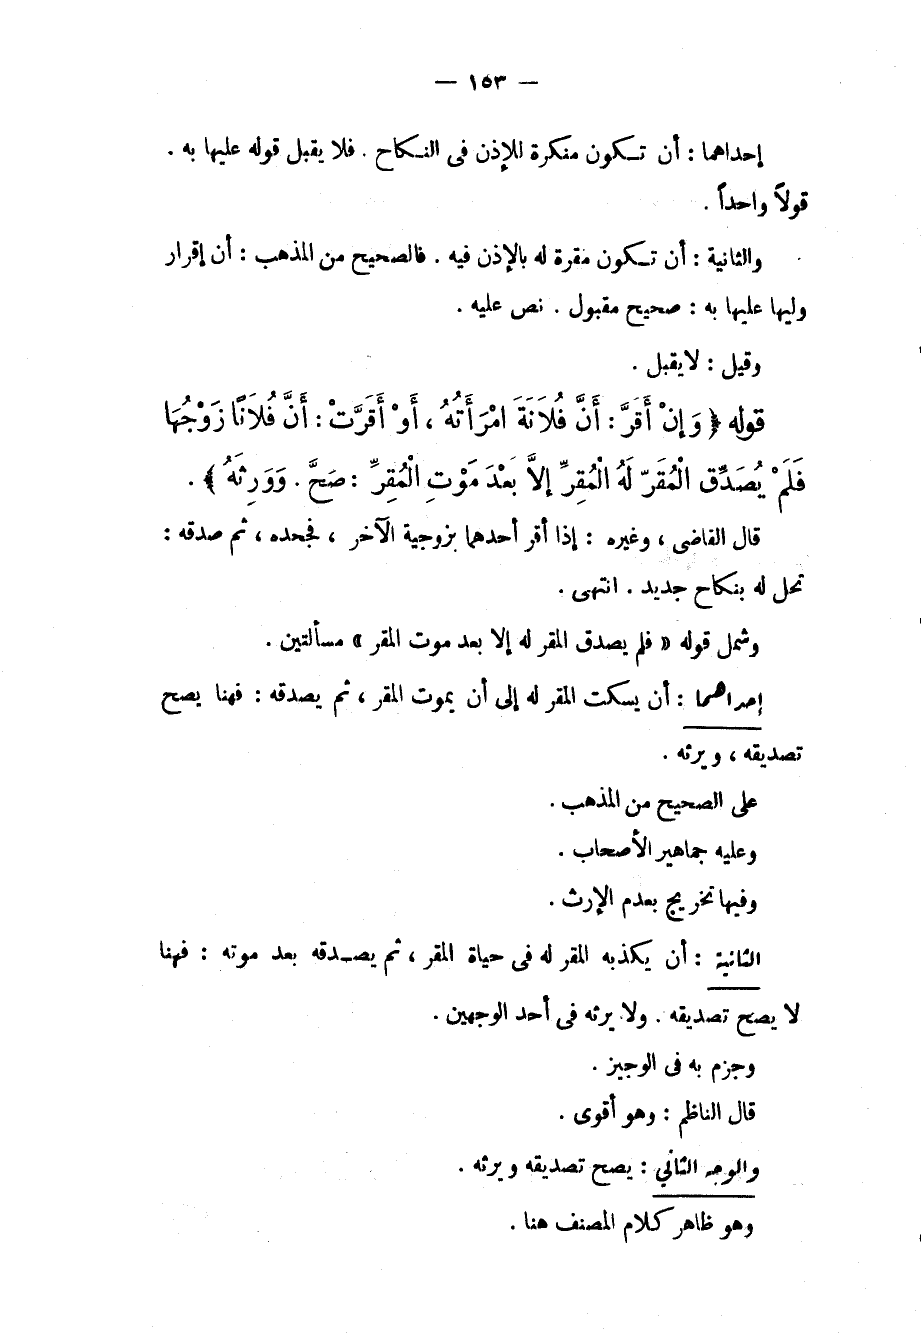 — ١٥٣ —
إحداهما : أن تكون منكرة للإذن فى النكاح . فلا يقبل قوله عليها به .
قولاً واحداً .
والثانية : أن تكون مقرة له بالإذن فيه . فالصحيح من المذهب : أن إقرار
وليها عليها به : صحيح مقبول . نص عليه .
وقيل : لا يقبل .
قوله ﴿ وَإِنْ أَقَرَّ : أَنَّ فُلَانَةَ امْرَأَتُهُ ، أَوْ أَقَرَّتْ : أَنَّ فُلَانًا زَوْجُهَا
فَلَمْ يُصَدِّق الْمُقَرّ لَهُ الْمُقِرِّ إلاَّ بَعْدَ مَوْتِ الْمُقِرِّ : صَحَّ . وَوَرِثَهُ ﴾ .
قال القاضى ، وغيره : إذا أقر أحدهما بزوجية الآخر ، فجحده ، ثم صدقه :
تحل له بنكاح جديد . انتهى .
وشمل قوله « فلم يصدق المقر له إلا بعد موت المقر » مسألتين .
إحداهما : أن يسكت المقر له إلى أن يموت المقر ، ثم يصدقه : فهنا يصح
تصديقه ، ويرثه .
على الصحيح من المذهب .
وعليه جماهير الأصحاب .
وفيها تخريج بعدم الإرث .
الثانية : أن يكذبه المقر له فى حياة المقر ، ثم يصدقه بعد موته : فهنا
لا يصح تصديقه . ولا يرثه فى أحد الوجهين .
وجزم به فى الوجيز .
قال الناظم : وهو أقوى .
والوجه الثانى : يصح تصديقه ويرثه .
وهو ظاهر كلام المصنف هنا .